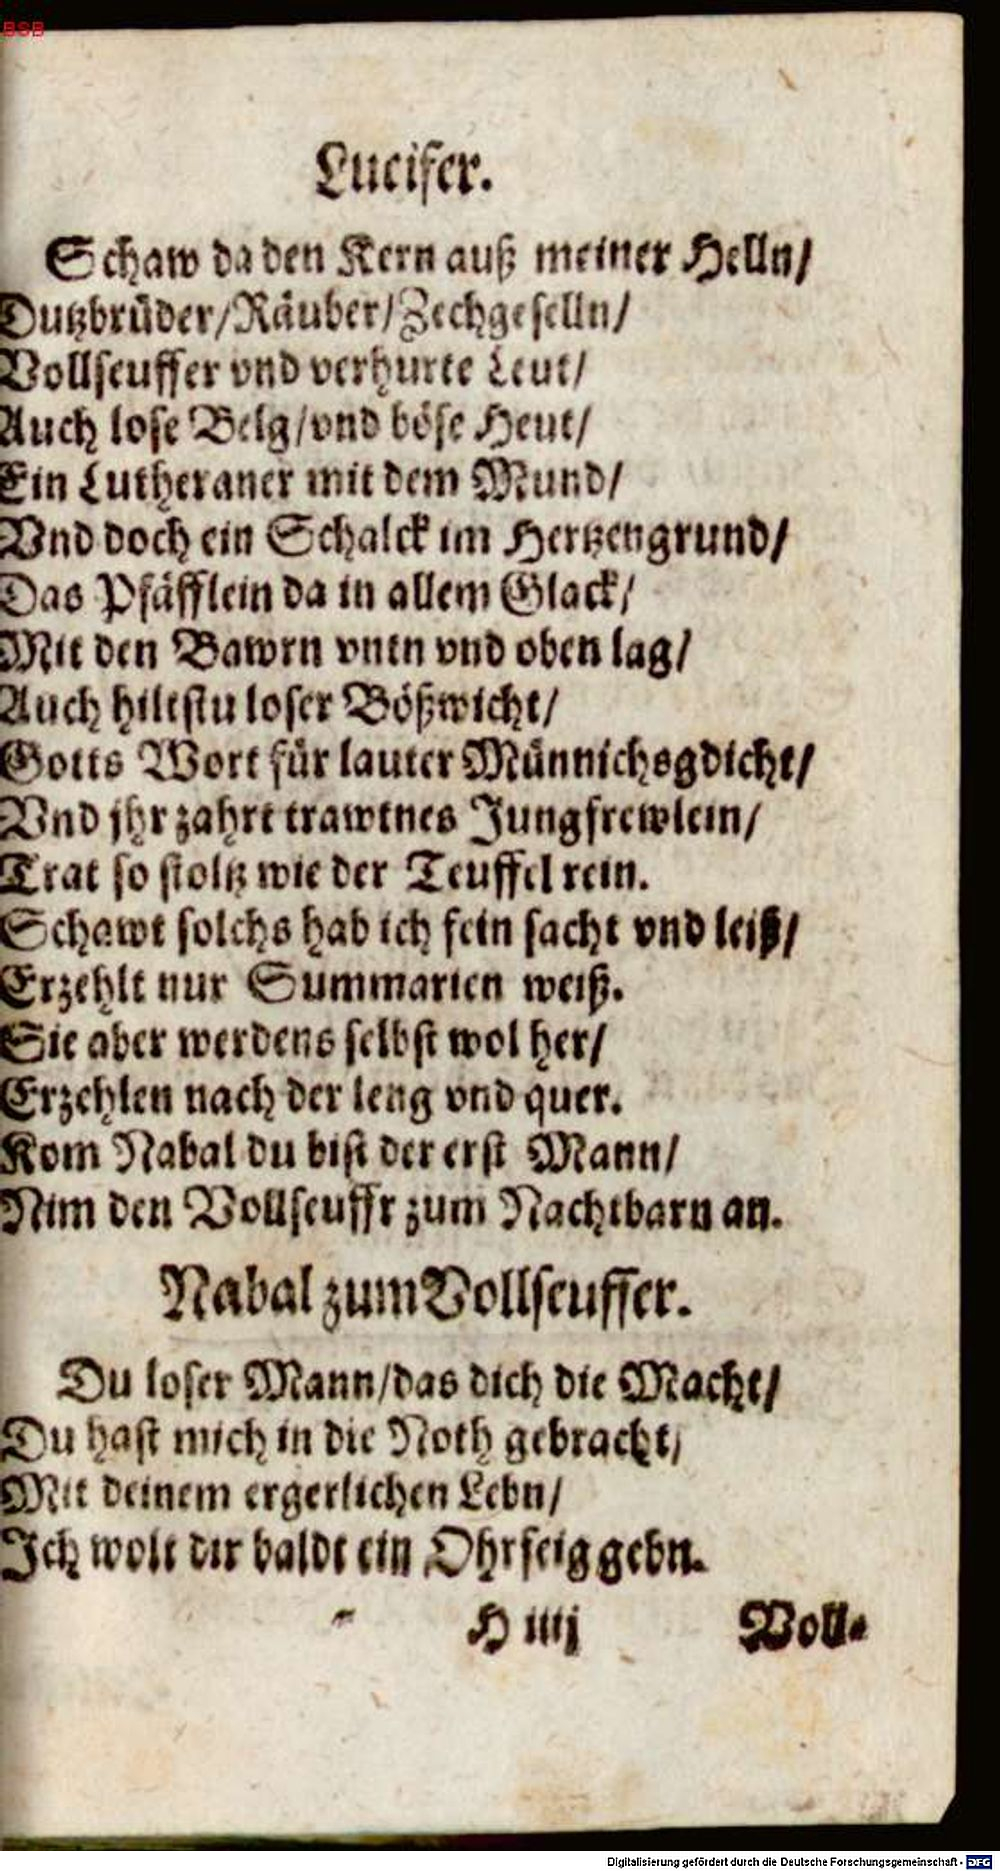 BSB
Lucifer.
Schaw da den Kern auß meiner Helln/
Dutzbrüder/Räuber/Zechgeselln/
Vollseuffer vnd verhurte Leut/
Auch lose Belg/vnd böse Heut/
Ein Lutheraner mit dem Mund/
Vnd doch ein Schalck im Hertzengrund/
Das Pfäfflein da in allem Glack/
Mit den Bawrn vntn vnd oben lag/
Auch hiltstu loser Bößwicht/
Gotts Wort für lauter Münnichsgdicht/
Vnd jhr zahrt trawtnes Jungfrewlein/
Trat so stoltz wie der Teuffel rein.
Schawt solchs hab ich fein sacht vnd leiß/
Erzehlt nur Summarien weiß.
Sie aber werdens selbst wol her/
Erzehlen nach der leng vnd quer.
Kom Nabal du bist der erst Mann/
Nim den Vollseuffr zum Nachtbarn an.
Nabal zum Vollseuffer.
Du loser Mann/das dich die Macht/
Du hast mich in die Noth gebracht/
Mit deinem ergerlichen Lebn/
Ich wolt dir baldt ein Ohrfeig gebn.
H iiij Voll-
Digitalisierung gefördert durch die Deutsche Forschungsgemeinschaft - DFG